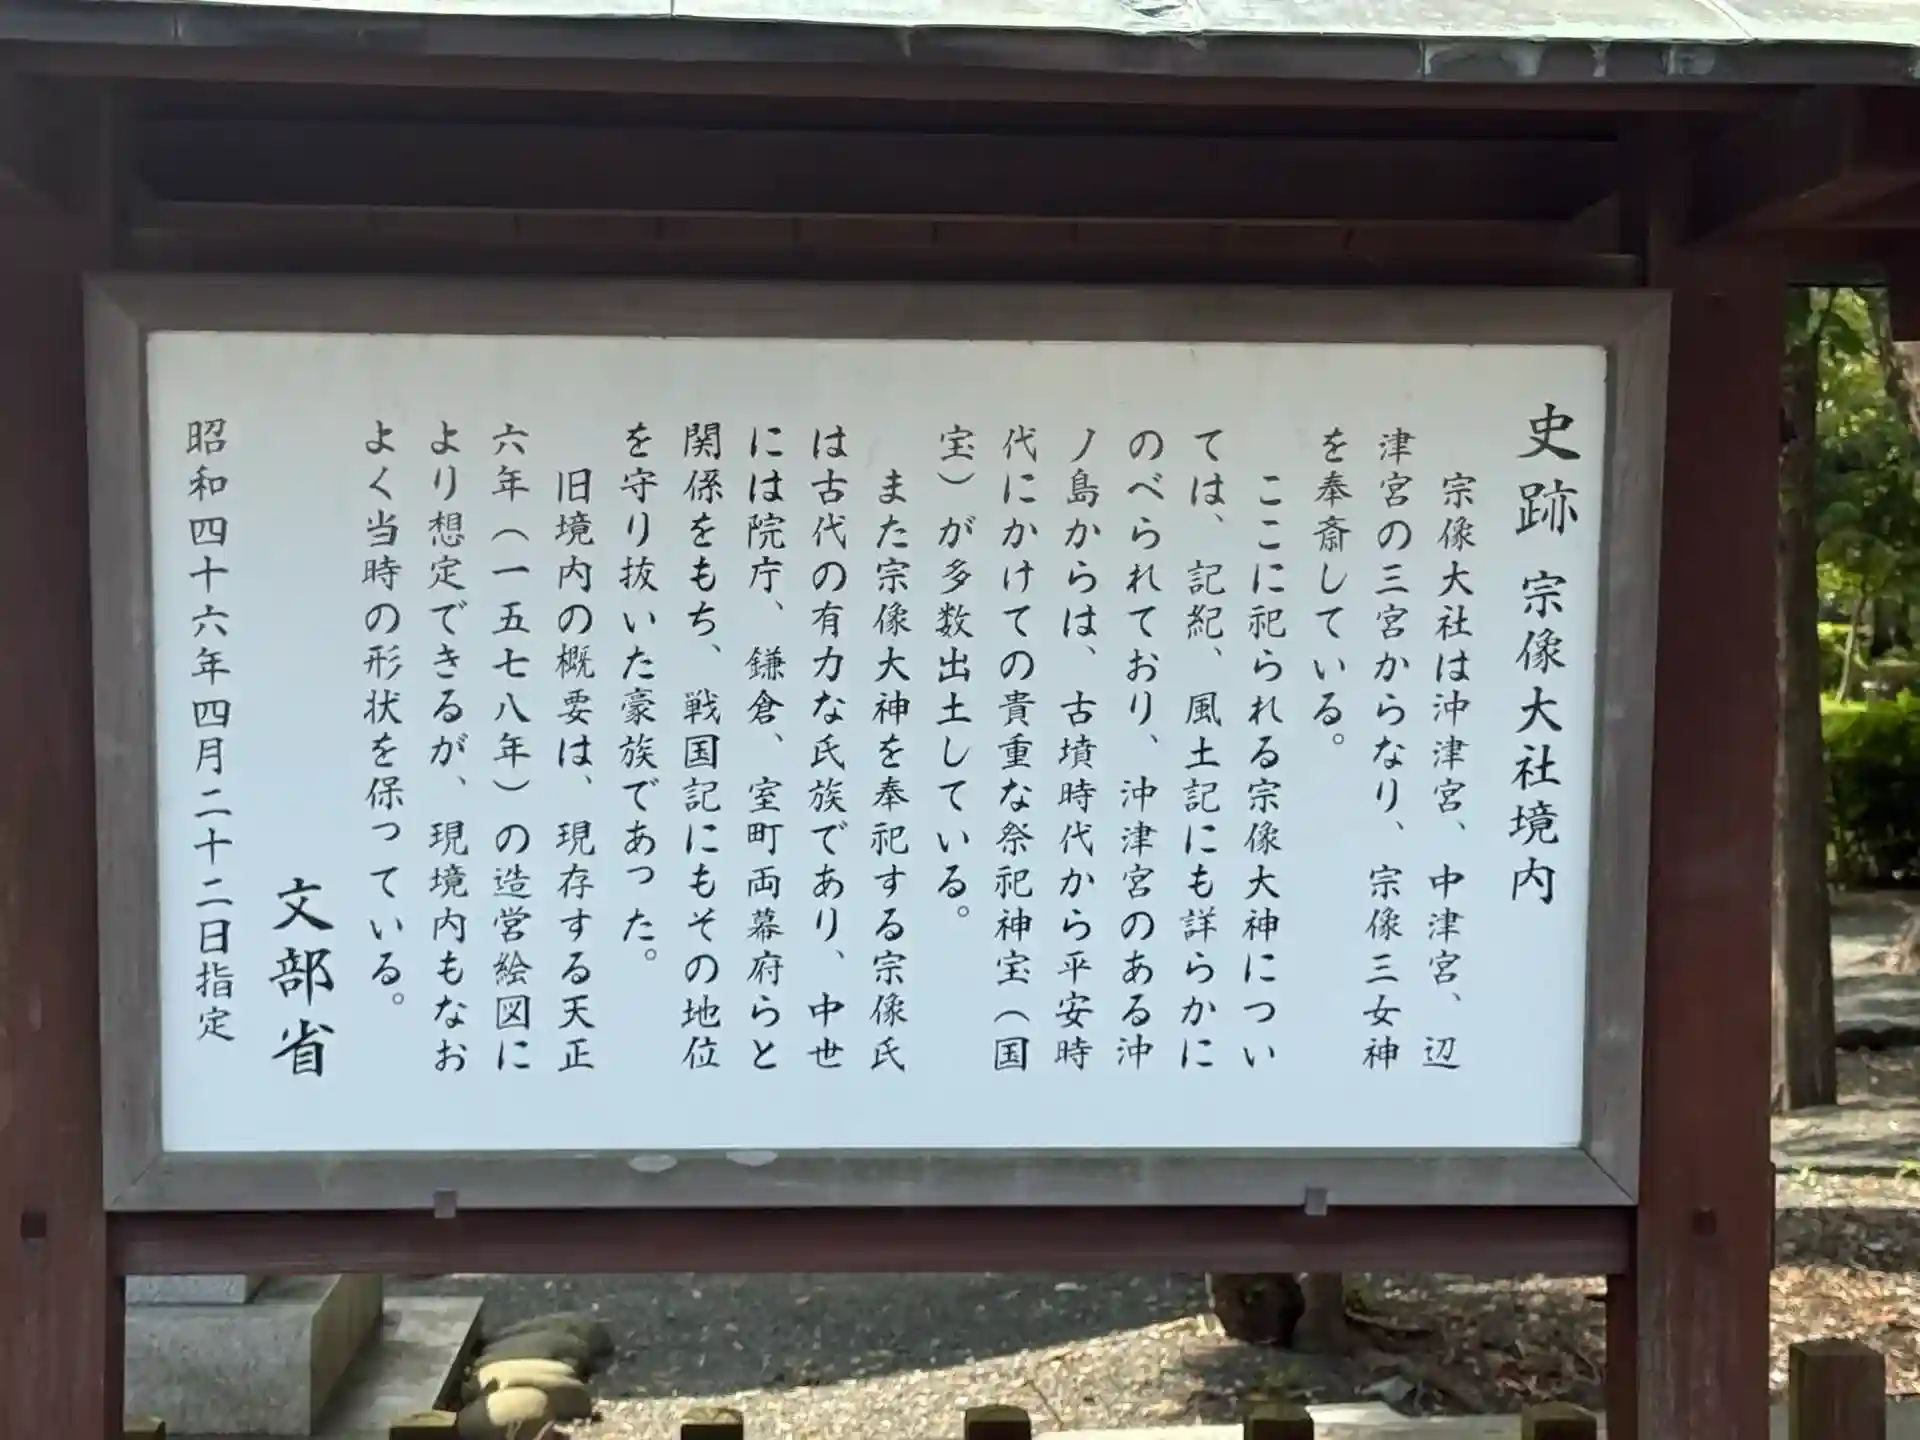 史跡 宗像大社境内
宗像大社は沖津宮、中津宮、辺
津宮の三宮からなり、宗像三女神
を奉斎している。
ここに祀られる宗像大神につい
ては、記紀、風土記にも詳らかに
のべられており、沖津宮のある沖
ノ島からは、古墳時代から平安時
代にかけての貴重な祭祀神宝(国
宝)が多数出土している。
また宗像大神を奉祀する宗像氏
は古代の有力な氏族であり、中世
には院庁、鎌倉、室町両幕府らと
関係をもち、戦国記にもその地位
を守り抜いた豪族であった。
旧境内の概要は、現存する天正
六年(一五七八年)の造営絵図に
より想定できるが、現境内もなお
よく当時の形状を保っている。
文部省
昭和四十六年四月二十二日指定